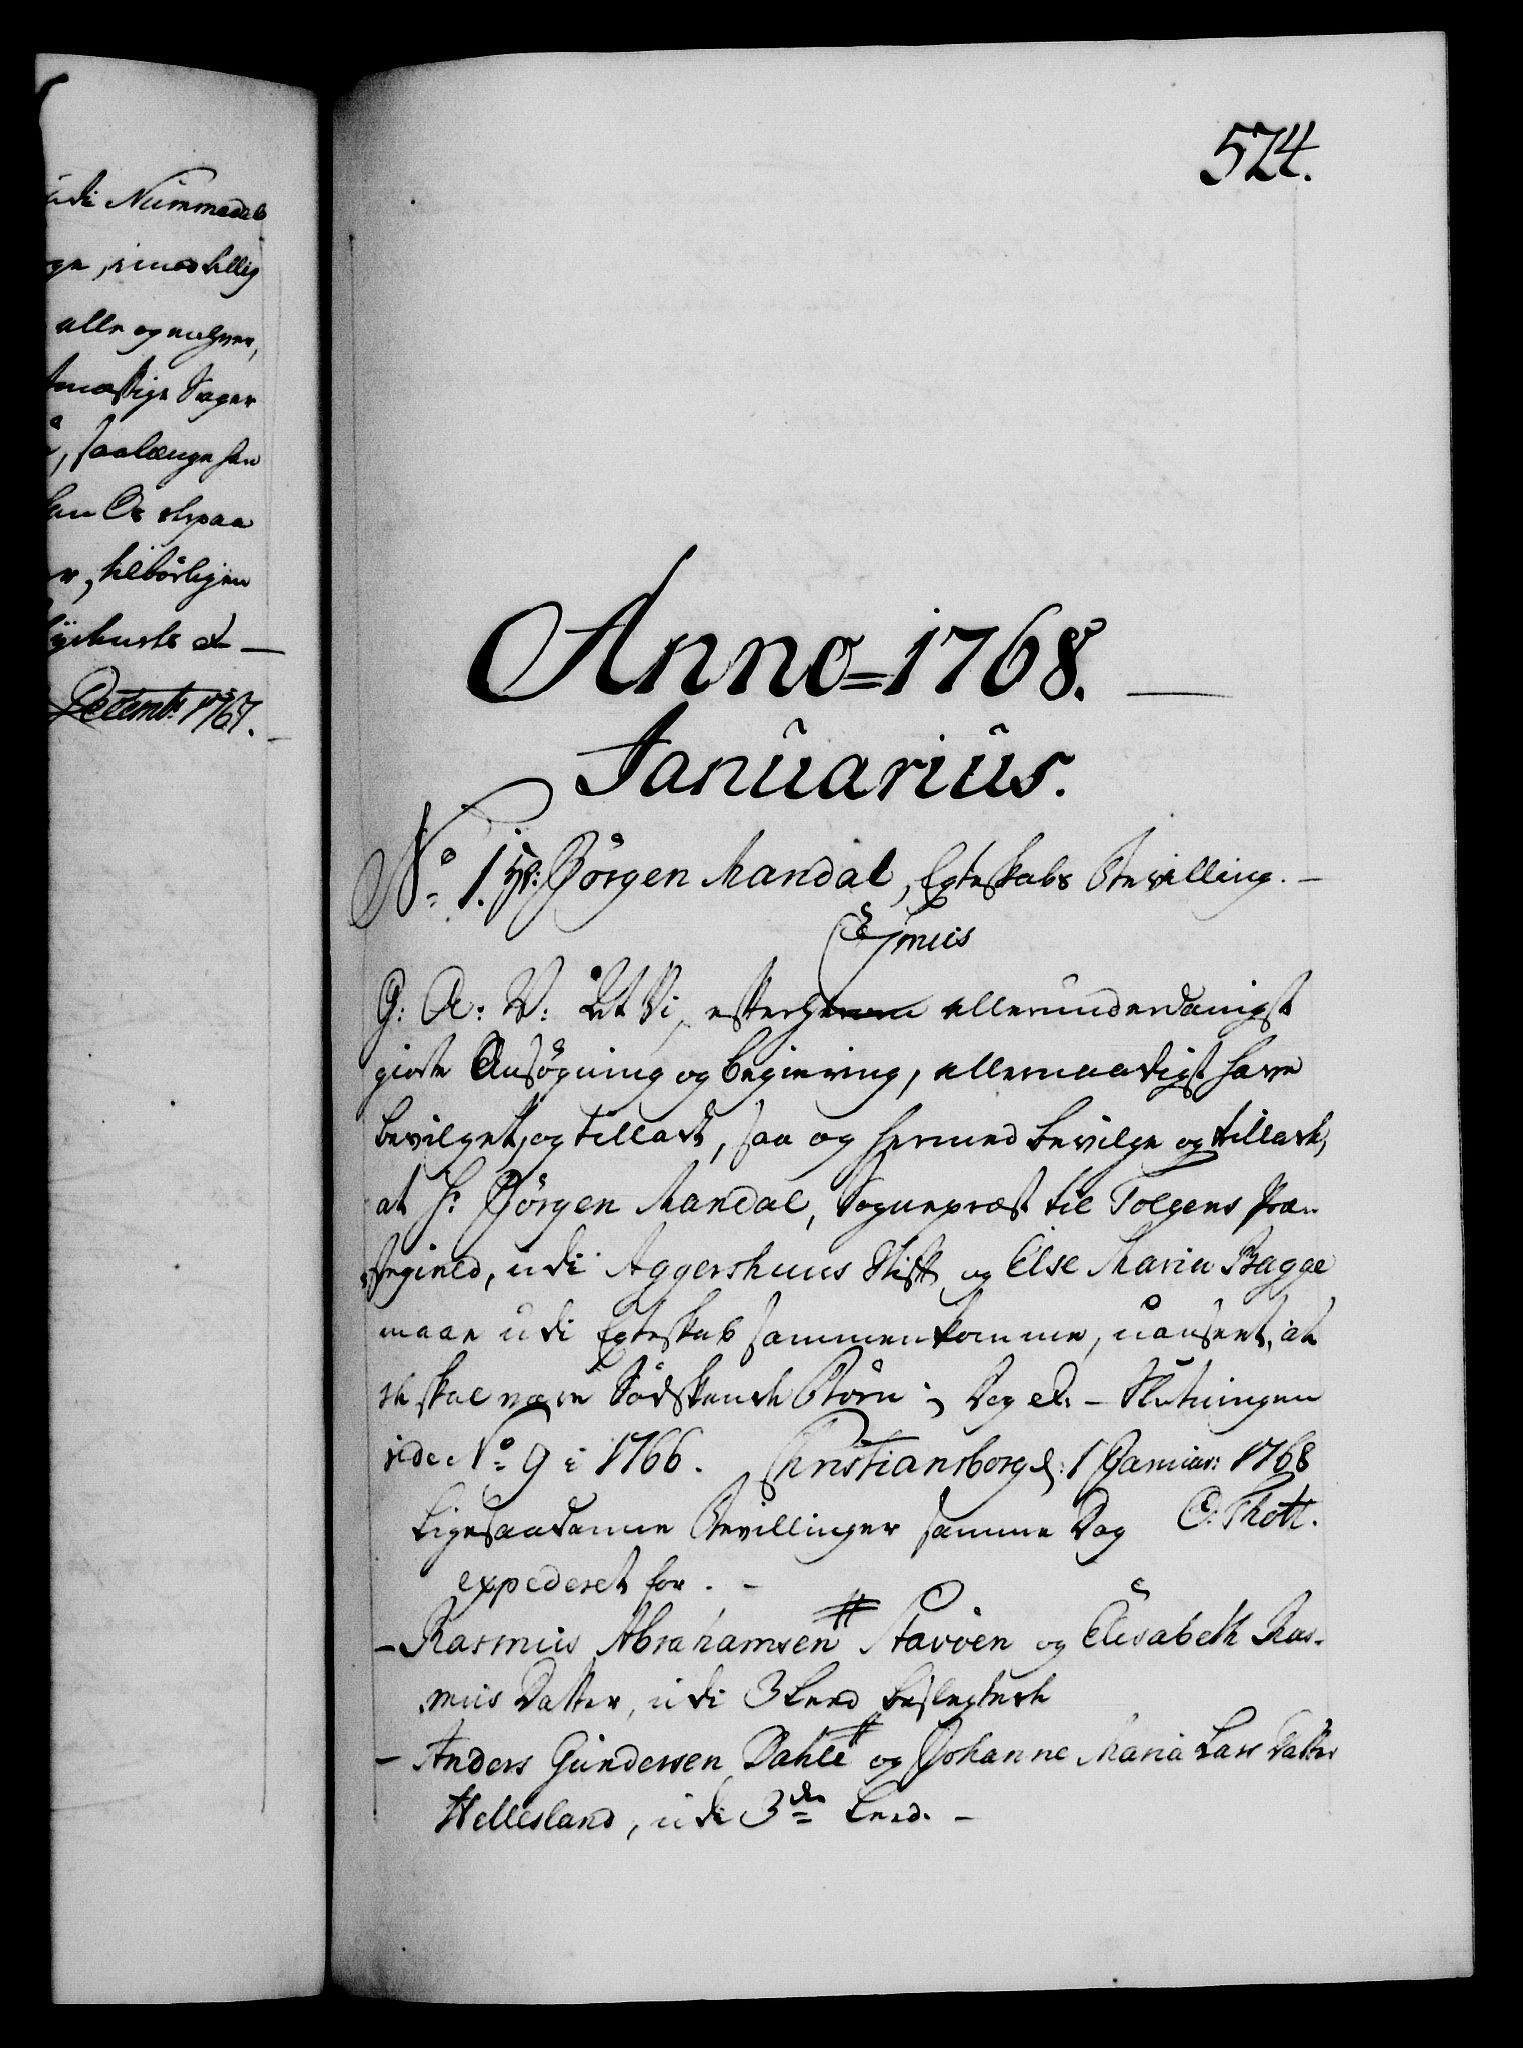 udi Nummedals
ge, imod billig
alle og enhver,
tmæssige Sager
, saalænge han
han Os derpaa
er, tilbörligen
Decembr 1767.
524.
Anno=1768.
Januarius.
No 1. Hr: Jörgen Mandal, Egteskabs Bevilling.
C 7mus
G: A: V: At Vi, efter allerunderdanigst
giorte Ansögning og begiering, allernaadigst have
bevilget, og tilladt, saa og hermed bevilge og tillade,
at Hr: Jörgen Mandal, Sognepræst til Tolgens Præ-
stegield, udi Aggershuus Stift og Else Maria Bagge
maae udi Egteskab sammenkomme, uanseet, at
de skal være Södskende Börn; Dog et: - Slutningen
vide No 9 i 1766. Christiansborg d: 1 Januar: 1768
Ligesaadanne Bevillinger samme Dag O: Thott.
expederet for. -
- Rasmus Abrahamsen Stavöen og Elisabeth Ras-
mus Datter, udi 3 Leed beslegtede
- Anders Gundersen Dahle og Johanne Maria Lars Datter
Hellesland, udi 3de Leed. -